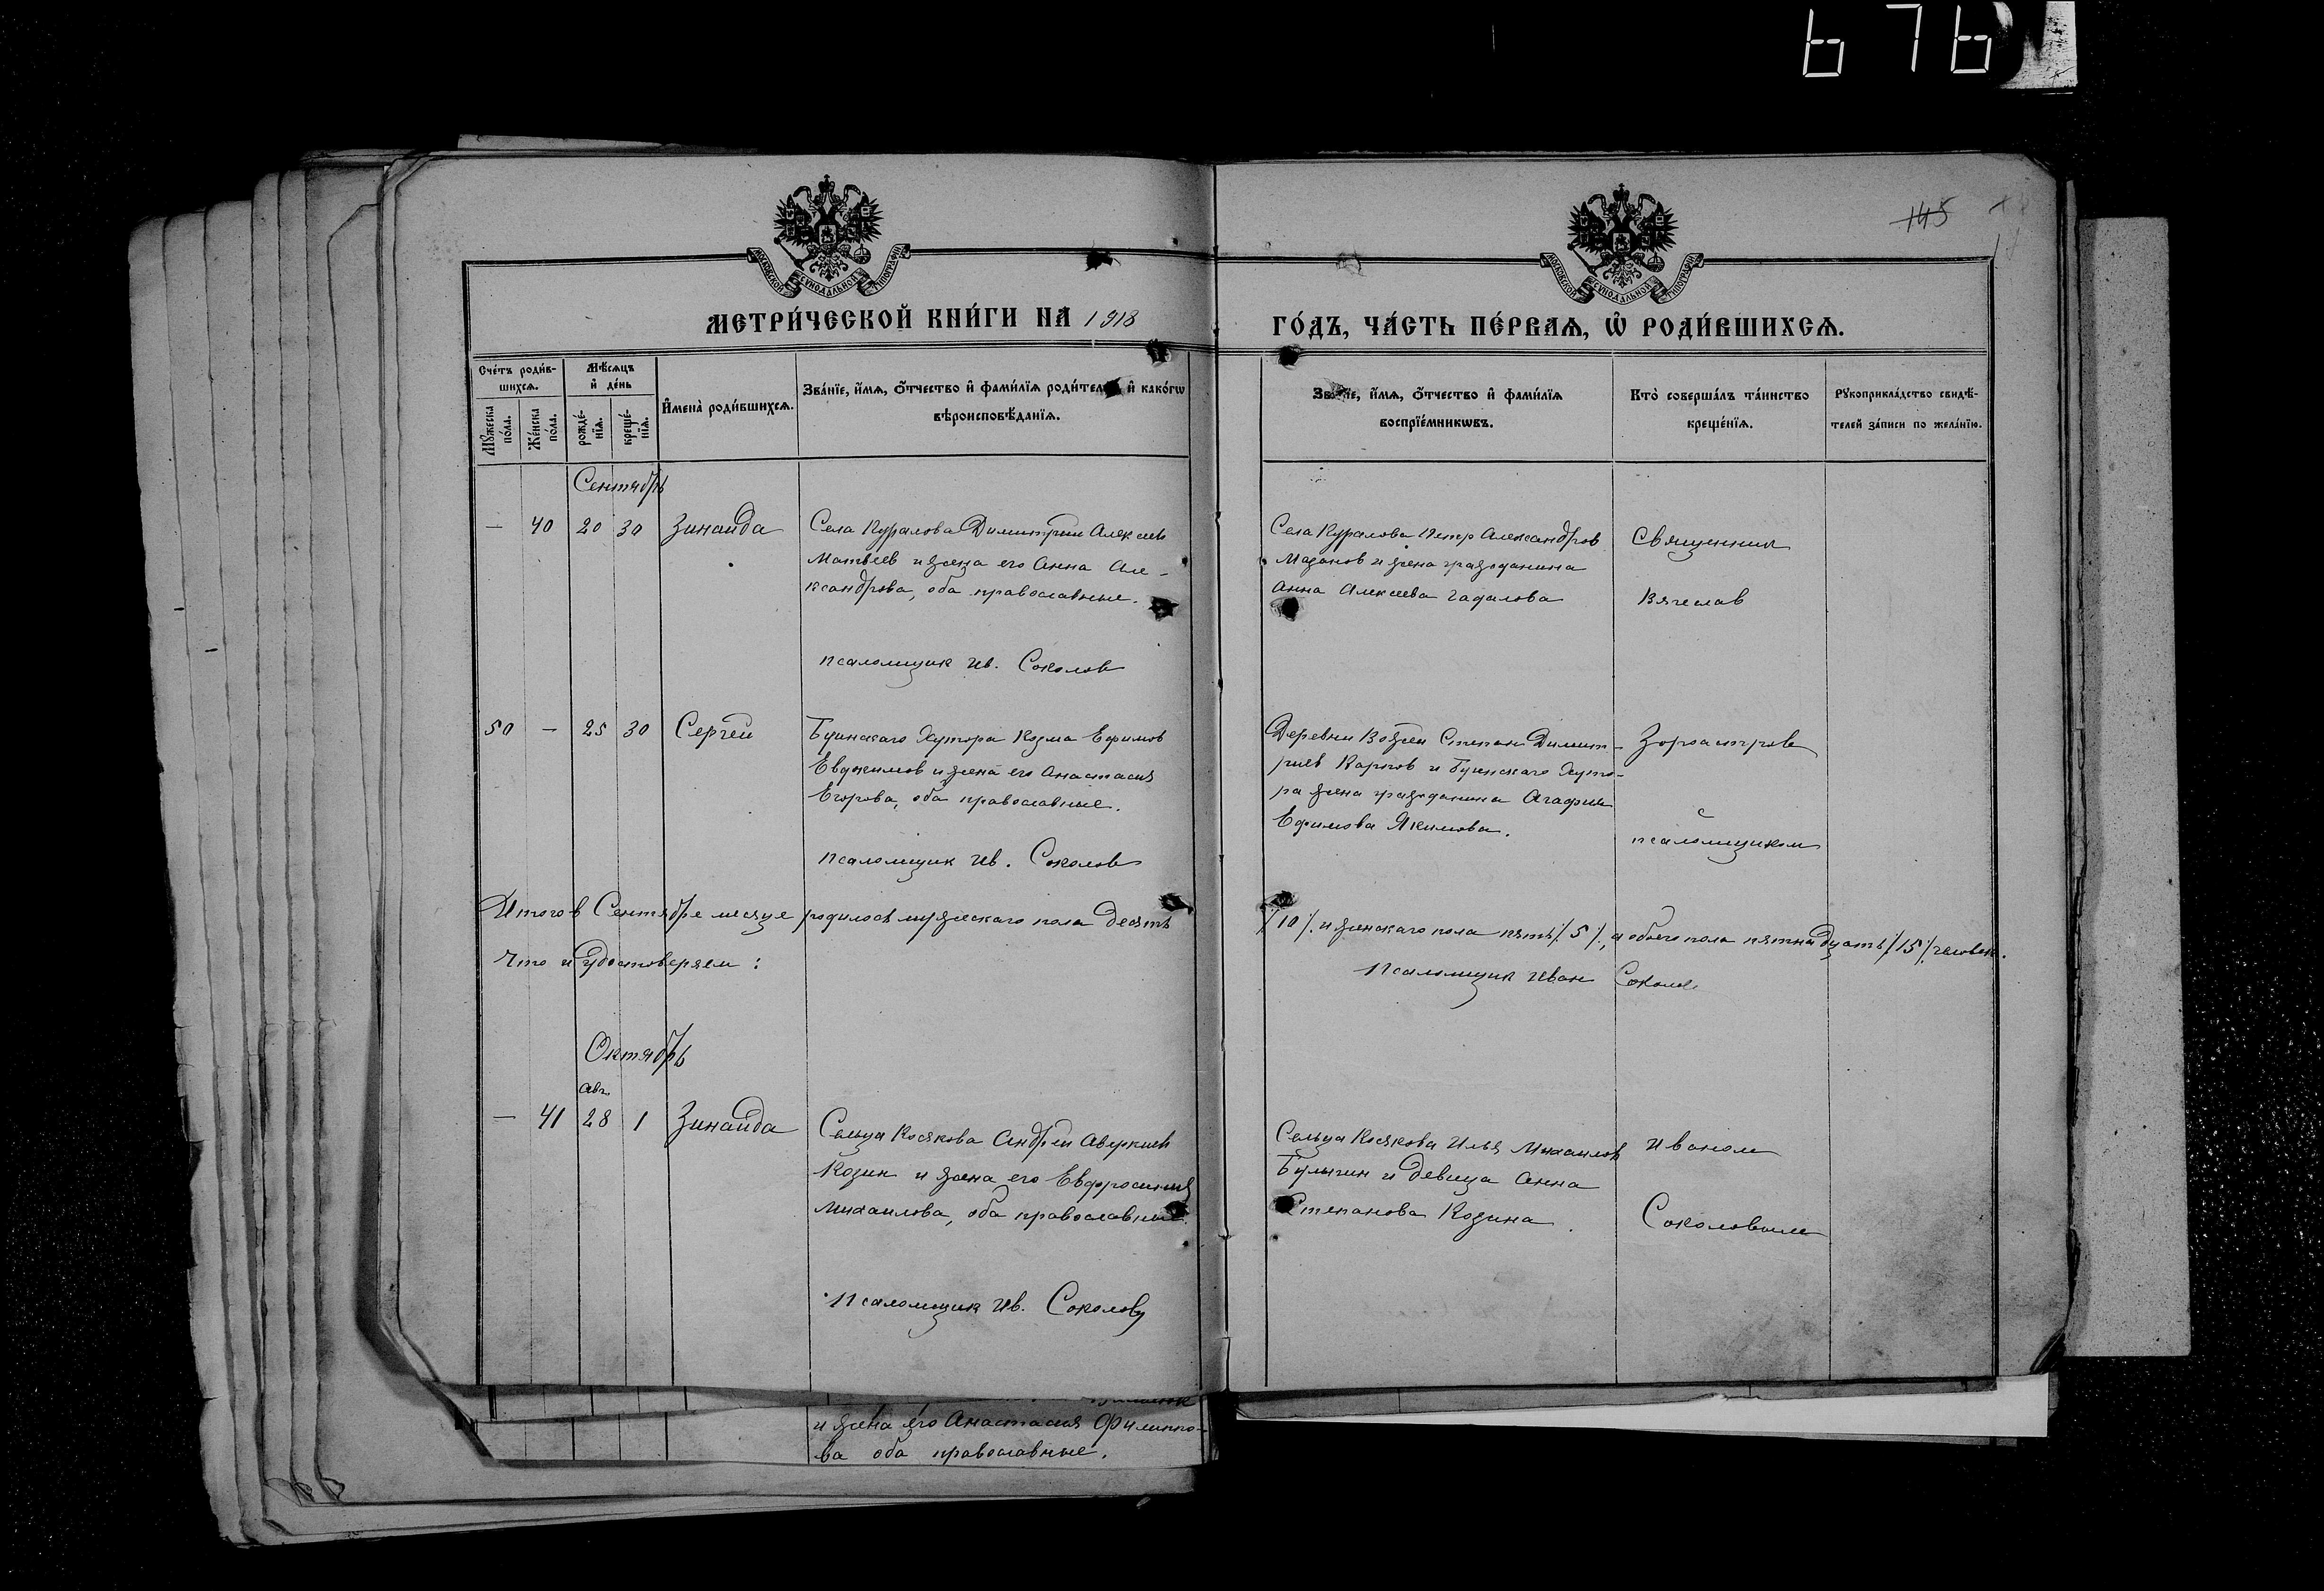 676
145
МОСКОВСКОЙ СѴНОДАЛЬНОЙ ТИПОГРАФІИ
МОСКОВСКОЙ СѴНОДАЛЬНОЙ ТИПОГРАФІИ
МЕТРИ́ЧЕСКОЙ КНИ́ГИ НА 1918
ГО́ДЪ, ЧА́СТЬ ПЕ́РВАѦ, Ѡ҆ РОДИ́ВШИХСѦ.
Сче́тъ роди́в-
шихсѧ.
Мꙋ́жеска по́ла.
Же́нска по́ла.
Мѣ́сѧцъ
и҆ де́нь
рожде́-
нїѧ.
креще́-
нїѧ.
И҆мена̀ роди́вшихсѧ.
Зва́нїе, и҆́мѧ, ѻ҆́тчество и҆ фами́лїѧ роди́телей и҆ како́гѡ
вѣроисповѣ́данїѧ.
Зва́нїе, и҆́мѧ, ѻ҆́тчество и҆ фами́лїѧ
воспрїе́мникѡвъ.
Кто̀ соверша́лъ та́инство
креще́нїѧ.
Рꙋкоприкла́дство свидѣ́-
телей за́писи по жела́нїю.
Сентябрь
— 40 20 30 Зинаида
Села Куралова Димитрий Алексиев
Матвеев и жена его Анна Але-
ксандрова, оба православные.
псаломщик Ив. Соколов
Села Куралова Петр Александров
Мазанов и жена гражданина
Анна Алексеева Гадалова
Священник
Вячеслав
50 — 25 30 Сергей
Буинскаго Хутора Козма Ефимов
Евдокимов и жена его Анастасия
Егорова, оба православные.
псаломщик Ив. Соколов
Деревни Степан Димит-
риев Карпов и Буинскаго Хуто-
ра жена гражданина Агафия
Ефимова Якимова.
Зороастров
с
псаломщиком
Итого в Сентябре месяце родилось мужескаго пола десять
/10/. и женскаго пола пять /5/, а обоего пола пятнадцать /15/ человек.
Что и удостоверяем:
Псаломщик Иван Соколов
Октябрь
авг.
— 41 28 1 Зинаида
Сельца Косякова Андрей Аверкиев
Козин и жена его Евфросиния
Михаилова, оба православные.
Псаломщик Ив. Соколов
Сельца Косякова Илья Михаилов
Булыгин и девица Анна
Степанова Козина.
Иваном
Соколовым
и жена его Анастасия Филиппо-
ва оба православные.